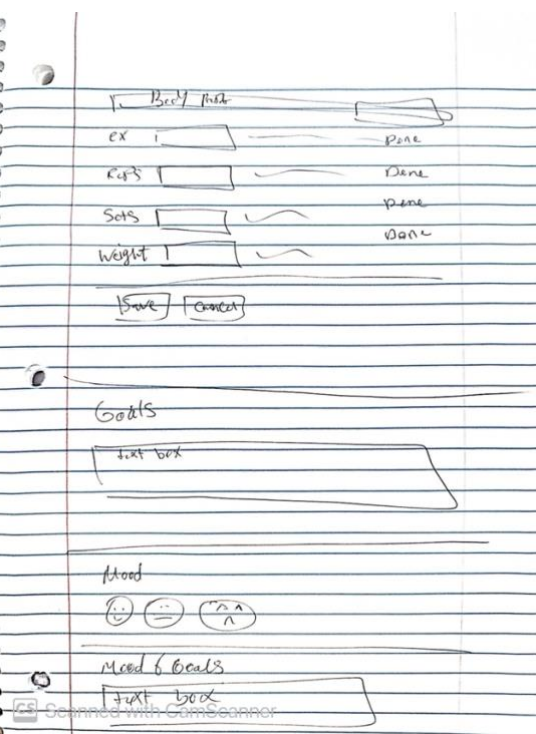 Body
ex Done
Reps Done
Sets Done
Weight Done
Save Cancel
Goals
text box
Mood
Mood & Goals
text box
CS Scanned with CamScanner